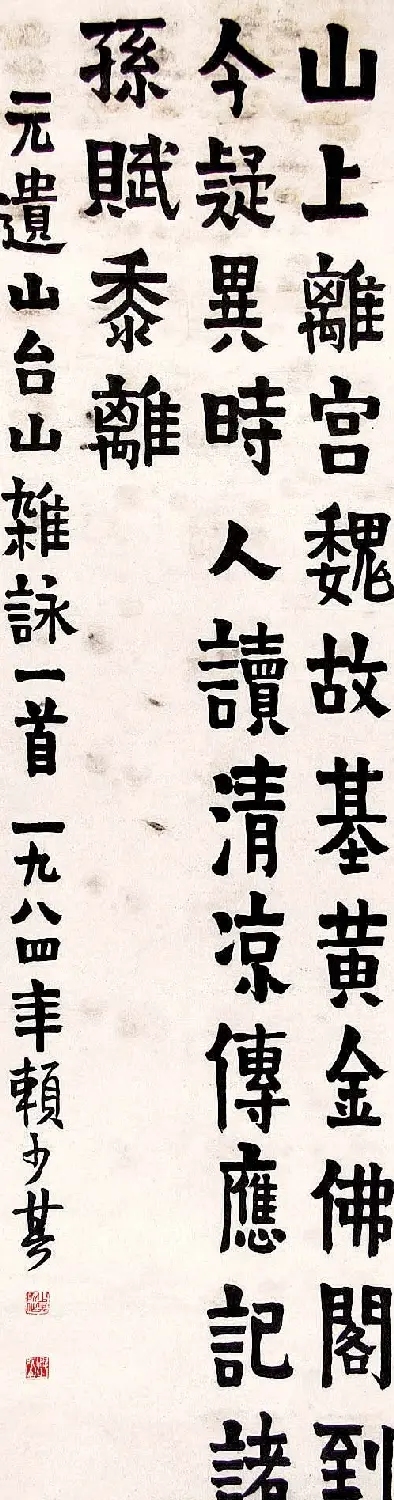 山上離宮魏故基黃金佛閣到
今疑異時人讀清凉傳應記諸
孫賦黍離
元遺山台山雜詠一首 一九八四年賴少其